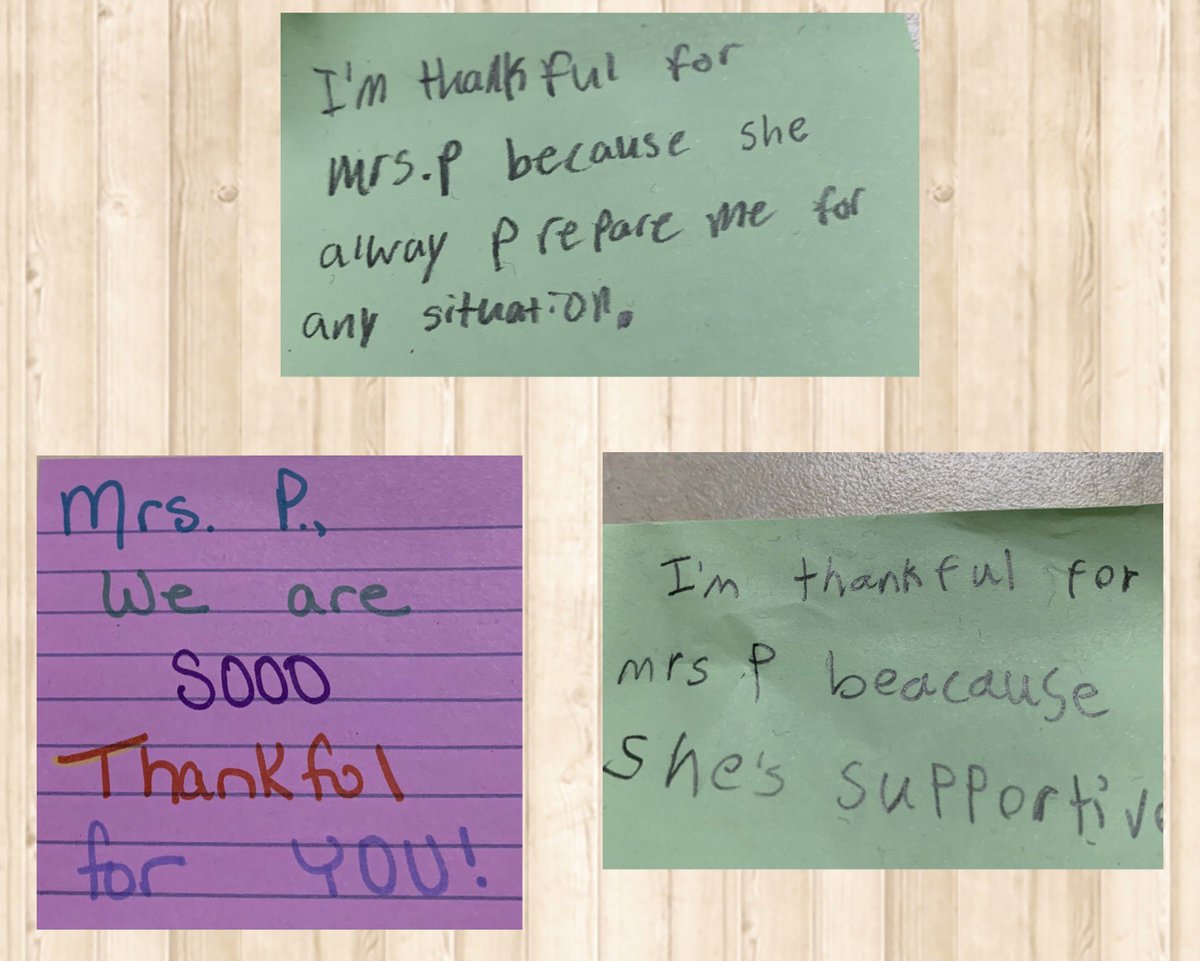 I'm thankful for
mrs.p because she
alway prepare me for
any situation.
Mrs. P.,
We are
SOOO
Thankful
for YOU!
I'm thankful for
mrs P beacause
she's supportive